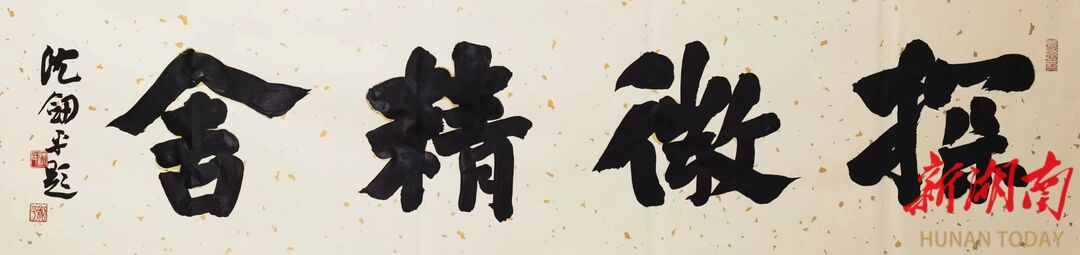 探微精舍
沈劍平题
新湖南
HUNAN TODAY